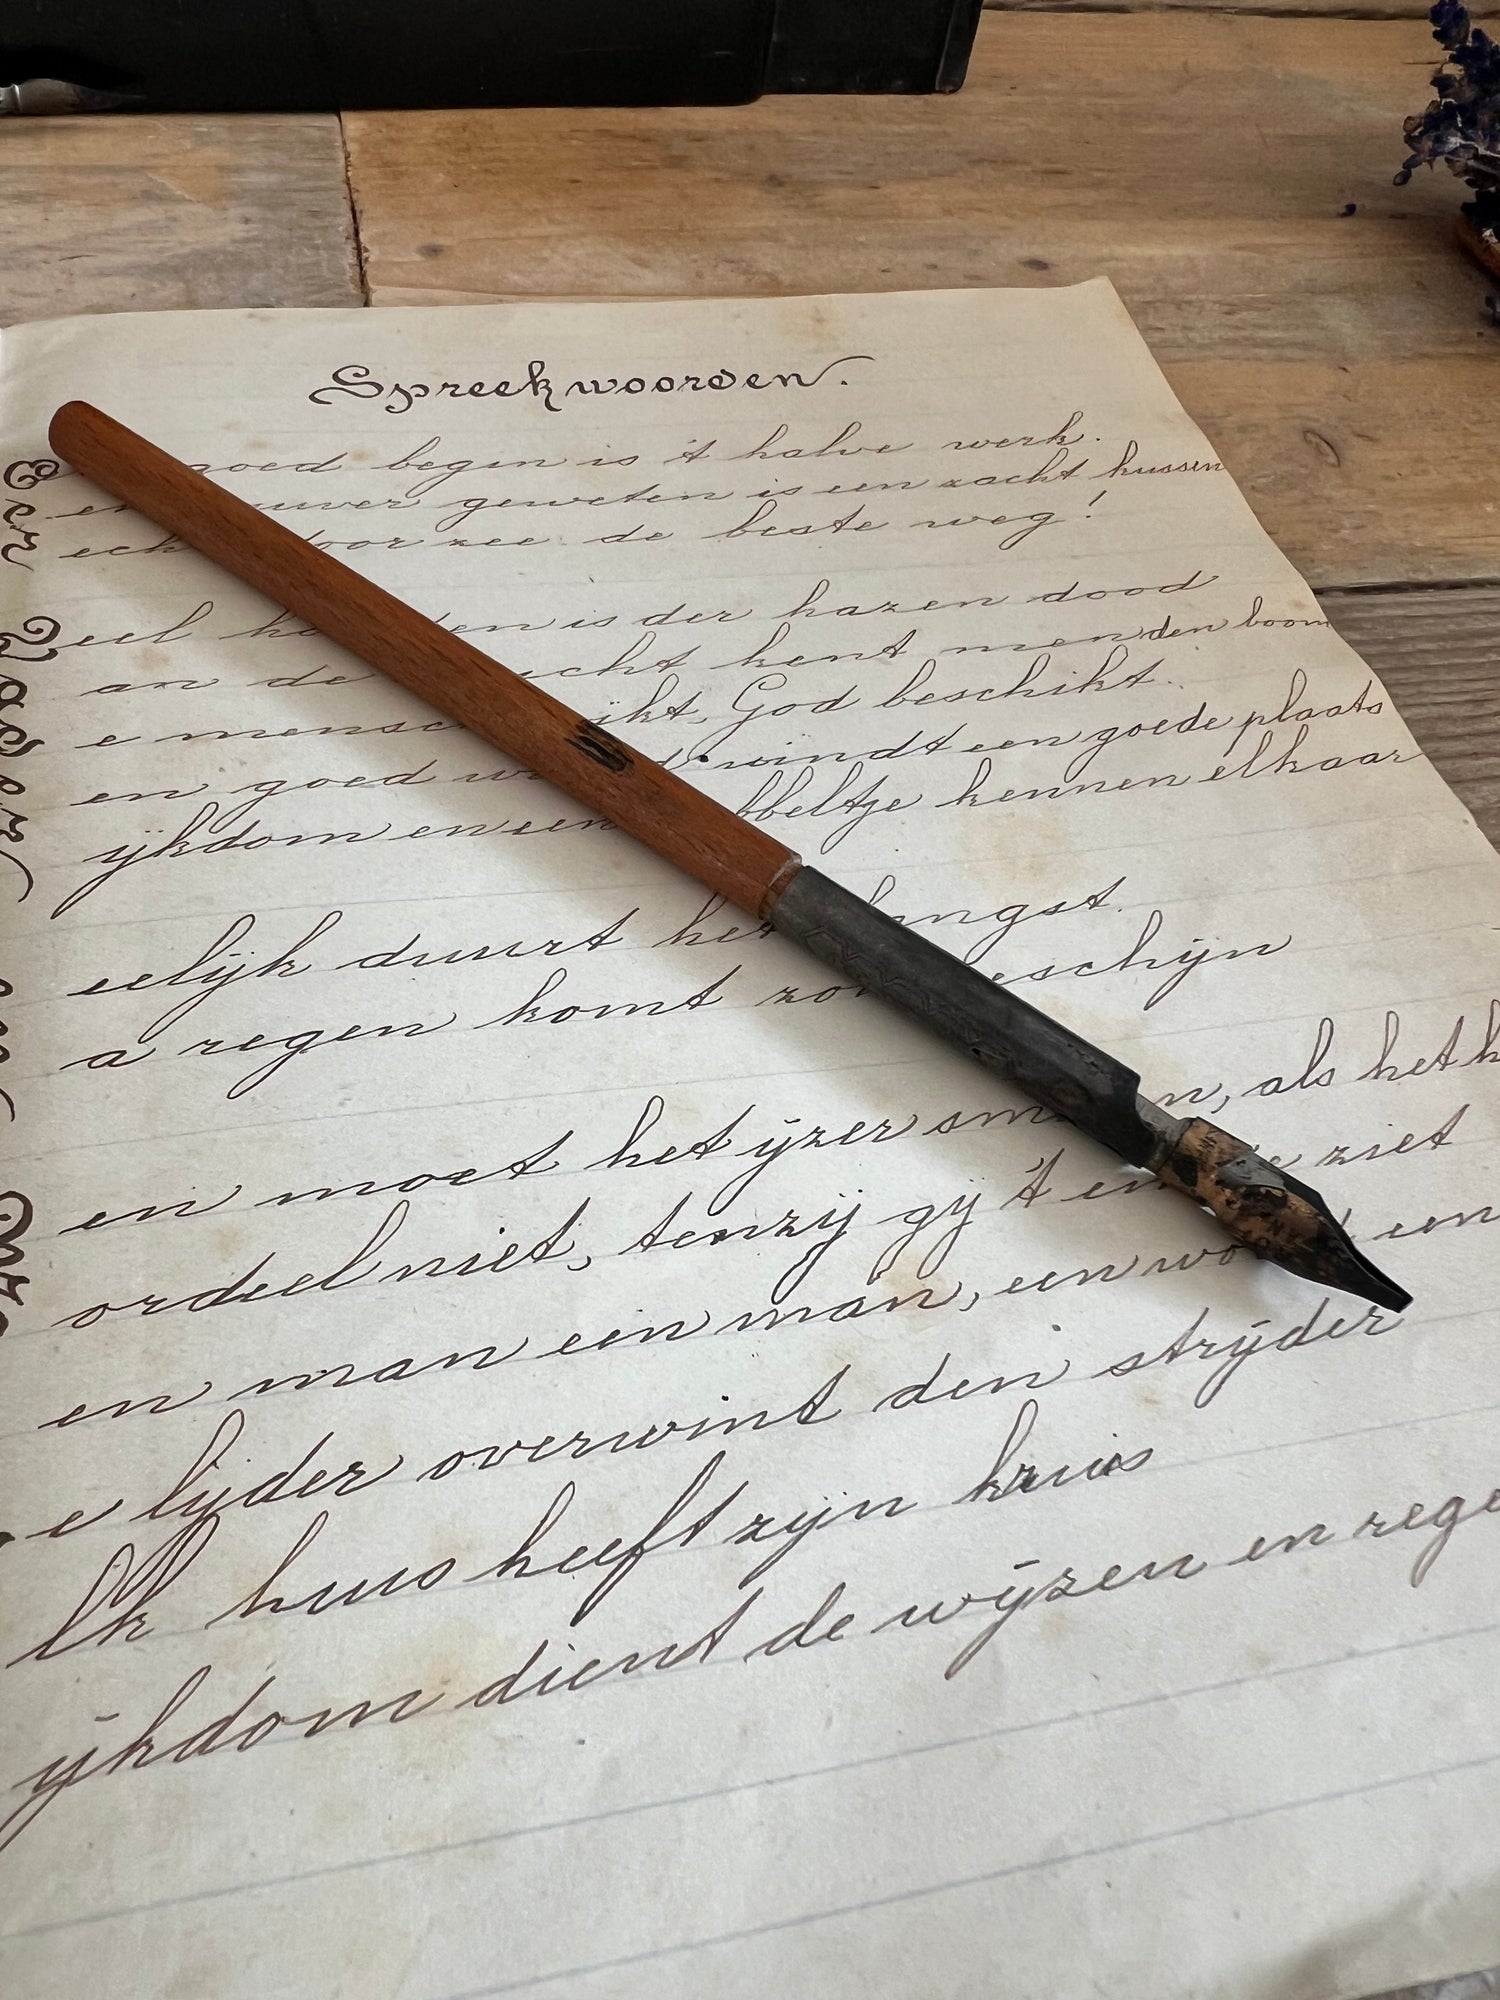 Spreekwoorden.
goed begin is 't halve werk.
geweten is een zacht kussen
door zee de beste weg!
eel is der hazen dood
an de kent men den boom
e God beschikt.
en goed vindt een goede plaats
ijkdom en een kennen elkaar
eelijk duurt het langst.
a regen komt zonneschijn
en moet het ijzer als het h
ordeel niet, tenzij gij 't ziet
en man een man, een woord een
e lijder overwint den strijder
lk huis heeft zijn kruis
ijkdom dient de wijzen en rege